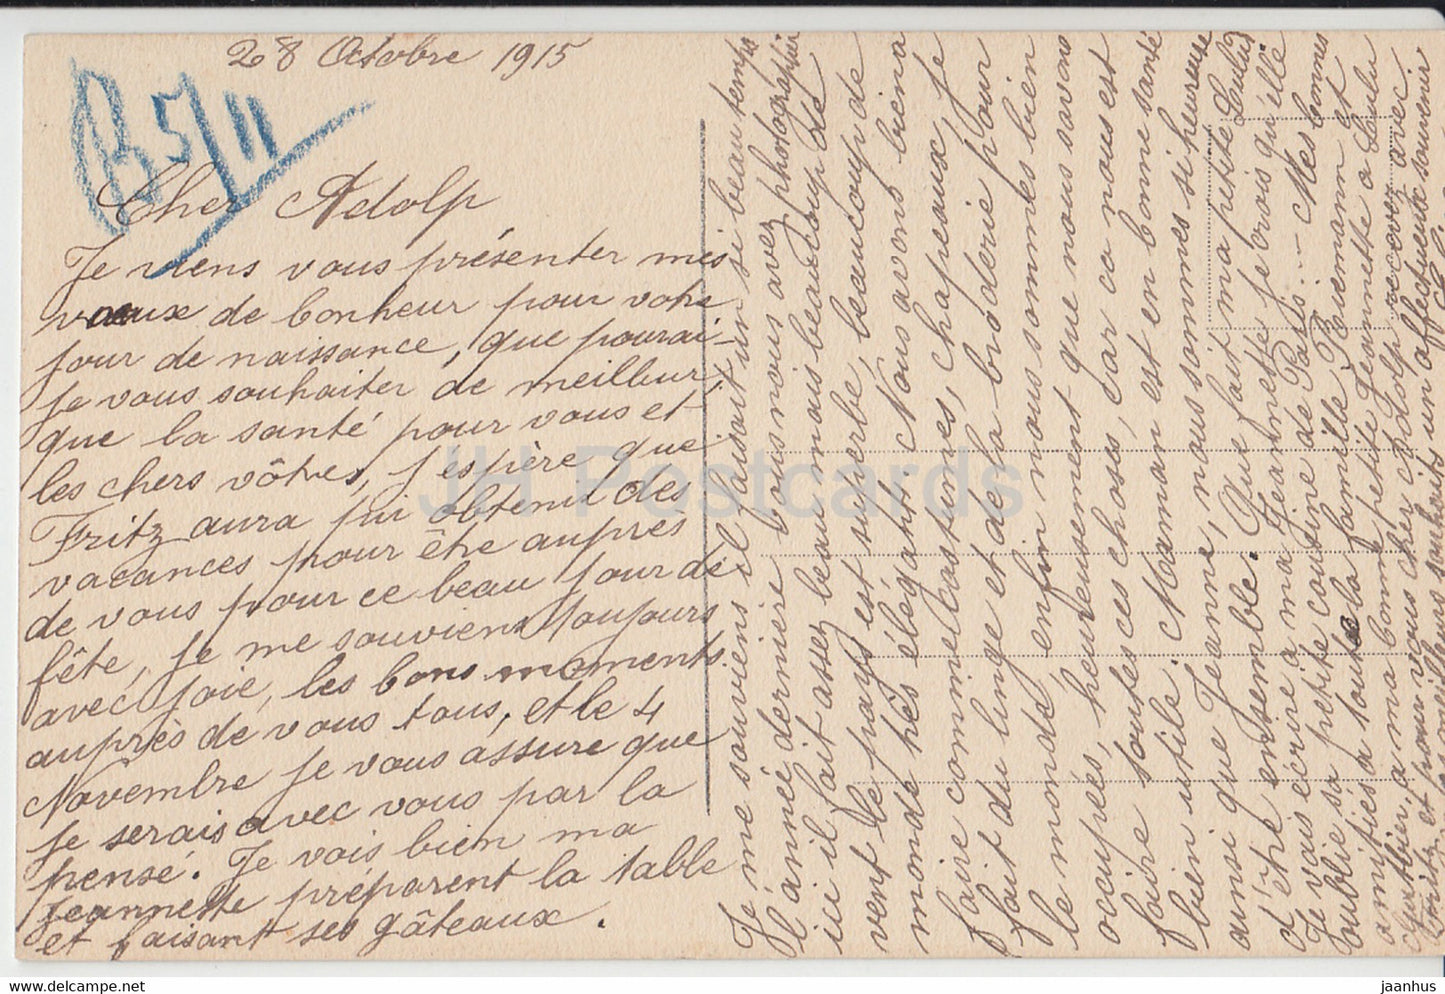 28 Octobre 1915
B 5/11
Cher Adolp
Je viens vous présenter mes
vœux de bonheur pour votre
jour de naissance, que pourai-
je vous souhaiter de meilleur,
que la santé pour vous et
les chers vôtres, j'espère que
Fritz aura pui obtenir des
vacances pour être aupres
de vous pour ce beau jour de
fête, je me souviens toujours
avec joie, les bons moments
auprès de vous tous, et le 4
Novembre je vous assure que
je serais avec vous par la
pensé. Je vois bien ma
Jeannette préparent la table
et faisant ses gâteaux.
Je me souviens il faisait un si beau temps
l'année dernière vous nous avez photographier
ici il fait assez beau mais beaucoup de
vent le pays est superbe, beaucoup de
monde très élégant. Nous avons bien a
faire comme costumes, chapeaux je
fait du linge et de la broderie pour
le monde enfin nous sommes bien
occupées, heureusement que nous savons
faire toutes ces choses, car ca nous est
bien utile. Maman est en bonne santé
ainsi que Jeanne, nous sommes si heureuse
d'être ensemble. Que fait ma petite Lulu
Je vais écrire a ma Jeannette je crois qu'elle
oublie sa petite cousine de Paris... Mes bonnes
amitiés a toute la famille et
a ma bonne petite Jeannette a Lulu
et pour vous cher Adolp recevez avec
les meilleurs souhaits un affectueux souvenir
JH Postcards
jaanhus